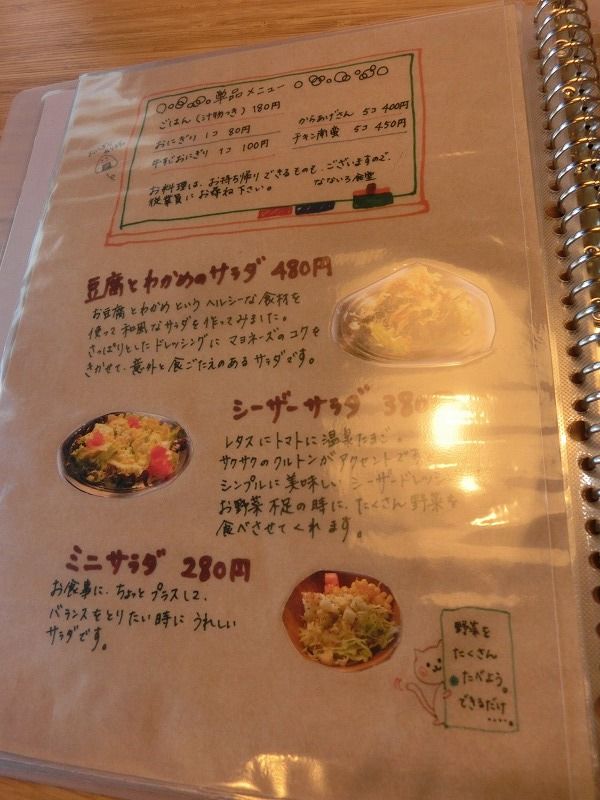 単品メニュー
ごはん(汁物つき) 180円
おにぎり 1コ 80円
牛すじおにぎり 1コ 100円
からあげさん 5コ 400円
チキン南蛮 5コ 450円
お料理は、お持ち帰りできるものも、ございますので、
従業員にお尋ね下さい。 なないろ食堂
豆腐とわかめのサラダ 480円
お豆腐とわかめというヘルシーな食材を
使って和風なサラダを作ってみました。
さっぱりとしたドレッシングにマヨネーズのコクを
きかせて、意外と食ごたえのあるサラダです。
シーザーサラダ 380
レタスにトマトに温泉たまご。
サクサクのクルトンがアクセントです
シンプルに美味しいシーザードレッシング
お野菜不足の時に、たくさん野菜を
食べさせてくれます。
ミニサラダ 280円
お食事に、ちょっとプラスして、
バランスをとりたい時にうれしい
サラダです。
野菜を
たくさん
たべよう。
できるだけ
....。